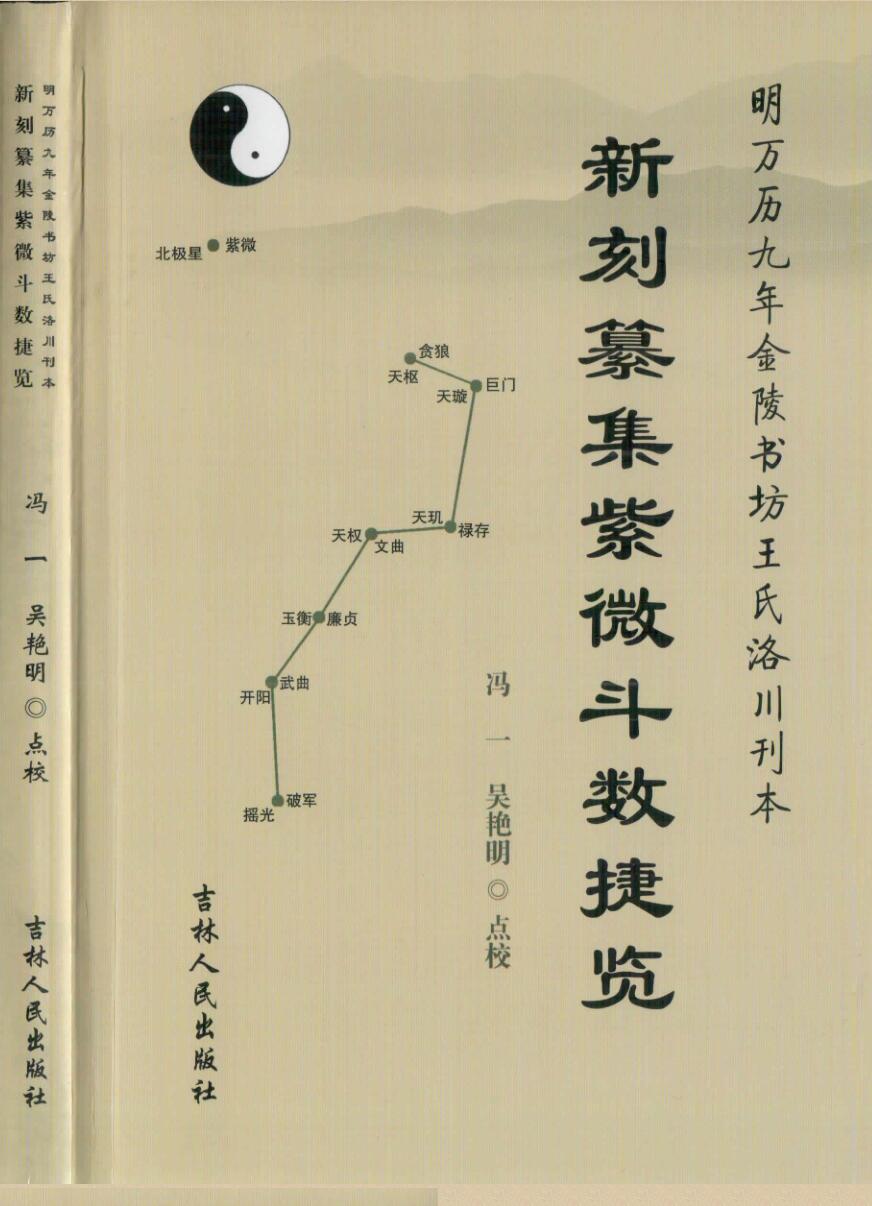 明万历九年金陵书坊王氏洛川刊本
新刻纂集紫微斗数捷览
冯一 吴艳明◎点校
吉林人民出版社
北极星 紫微
贪狼
天枢
巨门
天璇
天玑
禄存
天权
文曲
玉衡 廉贞
武曲
开阳
破军
摇光
明万历九年金陵书坊王氏洛川刊本
新刻纂集紫微斗数捷览
冯一 吴艳明◎点校
吉林人民出版社